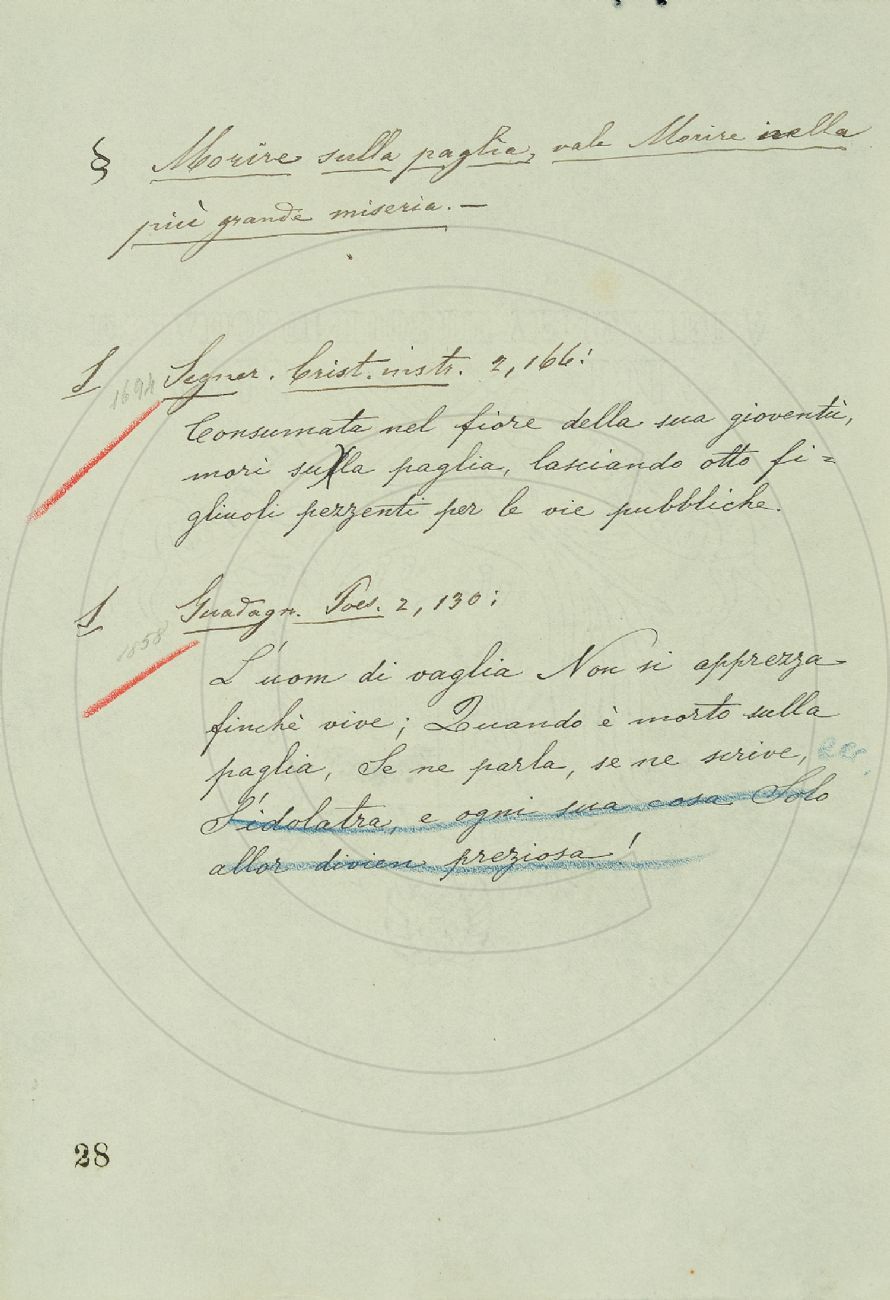 § Morire sulla paglia, vale Morire nella
più grande miseria. —
S Segner. Crist. instr. 2, 166:
1694
Consumata nel fiore della sua gioventù,
morì sulla paglia, lasciando otto fi=
gliuoli pezzenti per le vie pubbliche.
S Guadagn. Poes. 2, 130:
1858
L'uom di vaglia Non si apprezza
finchè vive; Quando è morto sulla
paglia, Se ne parla, se ne scrive,
S'idolatra, e ogni sua cosa Solo
allor divien preziosa!
28